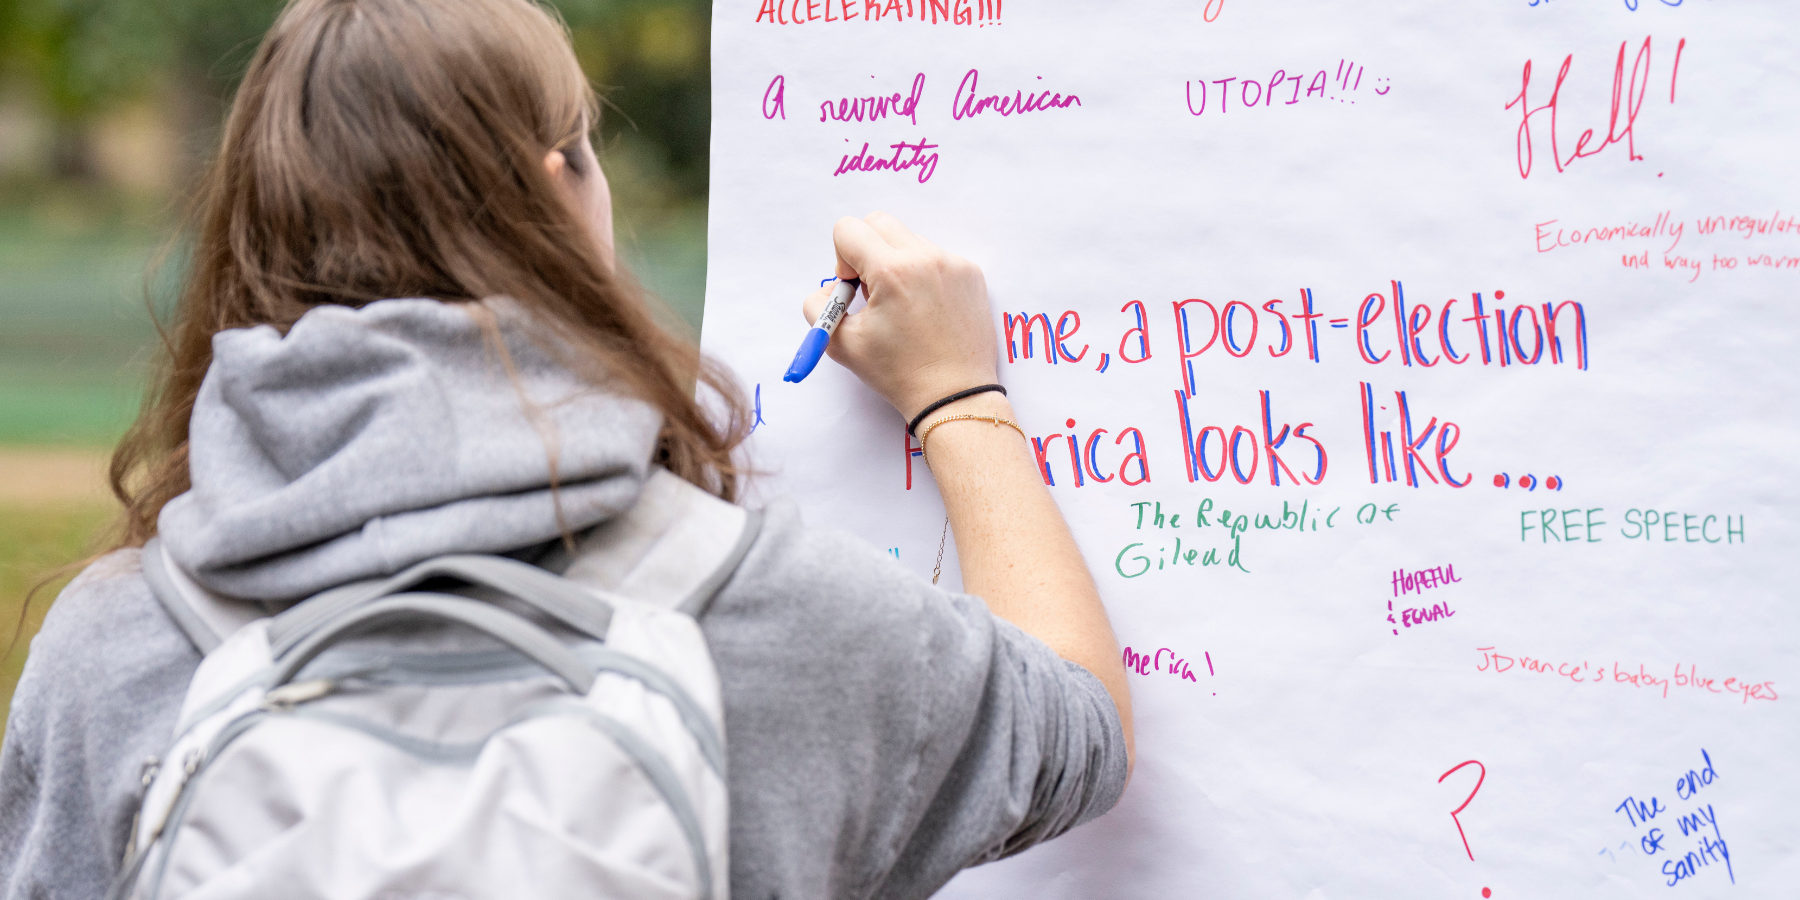 ACCELERATING!!!
A revived American
identity
UTOPIA!!! :)
Hell!
Economically unregulat
and way too warm
me, a post-election
rica looks like....
The Republic of
Gilead
FREE SPEECH
HOPEFUL
& EQUAL
merica!
JD vance's baby blue eyes
?
The end
of my
sanity